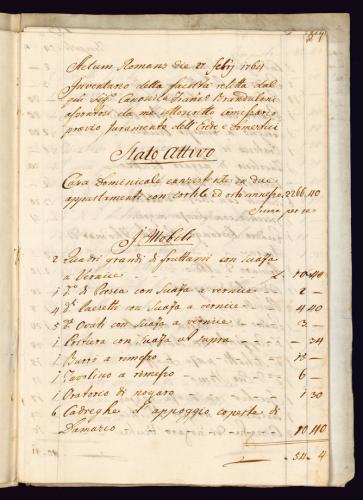 Actum Romano die 27 febrj 1764
Inventario della facoltà relitta dal
Canonico Franc.o Brandolini
da me sottoscritto comissario
previo juramento dell'Erede e domestici
Stato Attivo
Casa dominicale consistente in due
appartamenti con cortile ed orti annessi, 2266,40
Suma per se
J. Mobili
2 Quadri grandi di fruttami con suasa
a Vernice L. 10,40
1 D.o di Pesca con suasa a vernice 2 —
4 D.i Paesetti con suasa a vernice 4 40
5 D.i Ovati con suasa a vernice 3 —
1 Portiera con suasa ut supra — 34
1 Burrò a rimesso 15 —
1 Tavolino a rimesso 6 —
1 Oratorio di nogaro 1 30
6 Cadreghe d'appoggio coperte di
Damasco 10 40
54 4